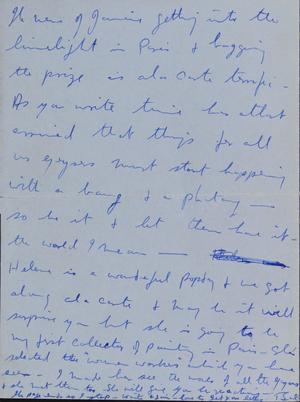 news of Jamini getting into the
limelight in Paris & bagging
the prize is ala carte terrific -
As you write time has at last
arrived that things for all
us geysers must start happening
with a bang & a
so be it & let them have it -
the world I mean —
Helene is a wonderful & we got
along ala carte & may be it will
surprise you but she is going to be
my first collector of painting in Paris -
selected the "woman worker" which you have
seen - I made her see the work of all the geysers
& she met them too She will give you
the page ends so I stop - write again love to